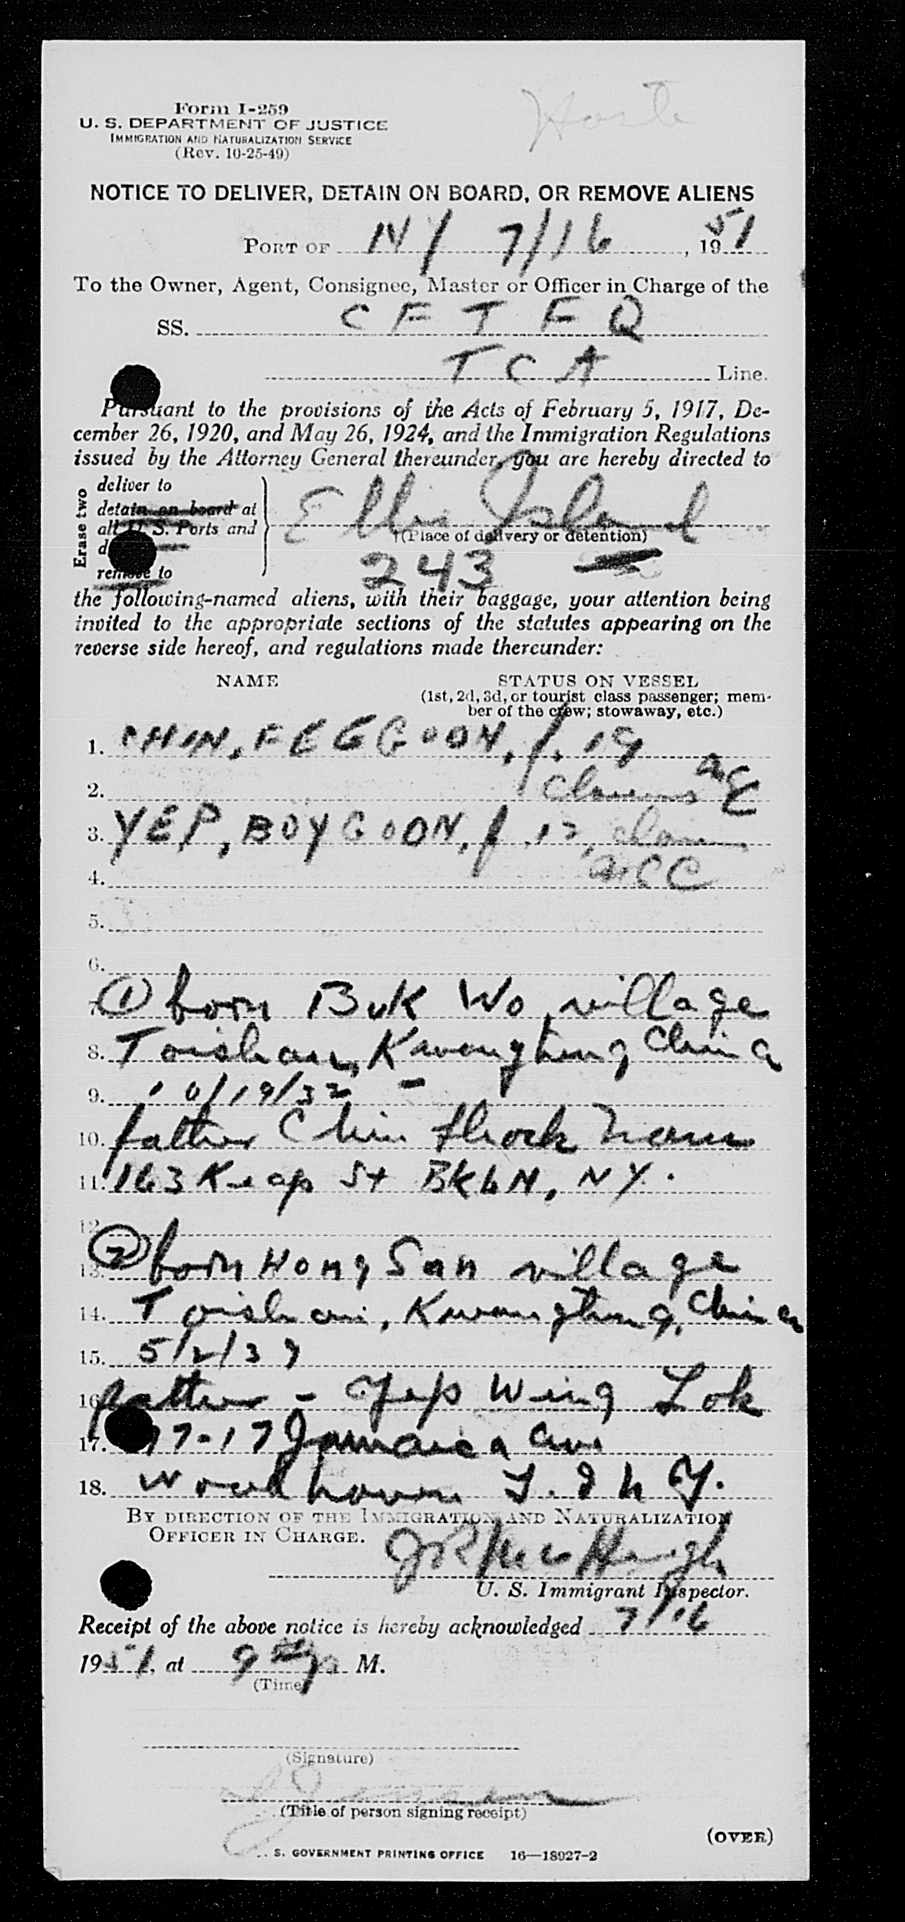 Form I-259
U. S. DEPARTMENT OF JUSTICE
IMMIGRATION AND NATURALIZATION SERVICE
(Rev. 10-25-49)
NOTICE TO DELIVER, DETAIN ON BOARD, OR REMOVE ALIENS
PORT OF NY 7/16, 1951
To the Owner, Agent, Consignee, Master or Officer in Charge of the
SS. C F T F Q
T C A Line.
Pursuant to the provisions of the Acts of February 5, 1917, De-
cember 26, 1920, and May 26, 1924, and the Immigration Regulations
issued by the Attorney General thereunder, you are hereby directed to
Erase two
deliver to
detain on board at
all U. S. Ports and
remove to
Ellis Island
(Place of delivery or detention)
243
the following-named aliens, with their baggage, your attention being
invited to the appropriate sections of the statutes appearing on the
reverse side hereof, and regulations made thereunder:
NAME STATUS ON VESSEL
(1st, 2d, 3d, or tourist class passenger; mem-
ber of the crew; stowaway, etc.)
1. CHIN, FEE GOON, f. 19
2. claims
3. YEP, BOY GOON, f. claim
4.
5.
6.
7. ① born Buk Wo village
8. Toishan, Kwangtung China
9. 10/19/32 -
10. father Chin Hock
11. 163 Keap St BklN, NY.
12.
13. ② born Hong San village
14. Toishan, Kwangtung, China
15. 5/2/39
16. father - Yep Wing Lok
17. 77-17 Jamaica Ave
18. Woodhaven L. I N Y.
BY DIRECTION OF THE IMMIGRATION AND NATURALIZATION
OFFICER IN CHARGE.
U. S. Immigrant Inspector.
Receipt of the above notice is hereby acknowledged 7/16
1951, at 9 p M.
(Time)
(Signature)
(Title of person signing receipt)
(OVER)
S. GOVERNMENT PRINTING OFFICE 16—18927-2